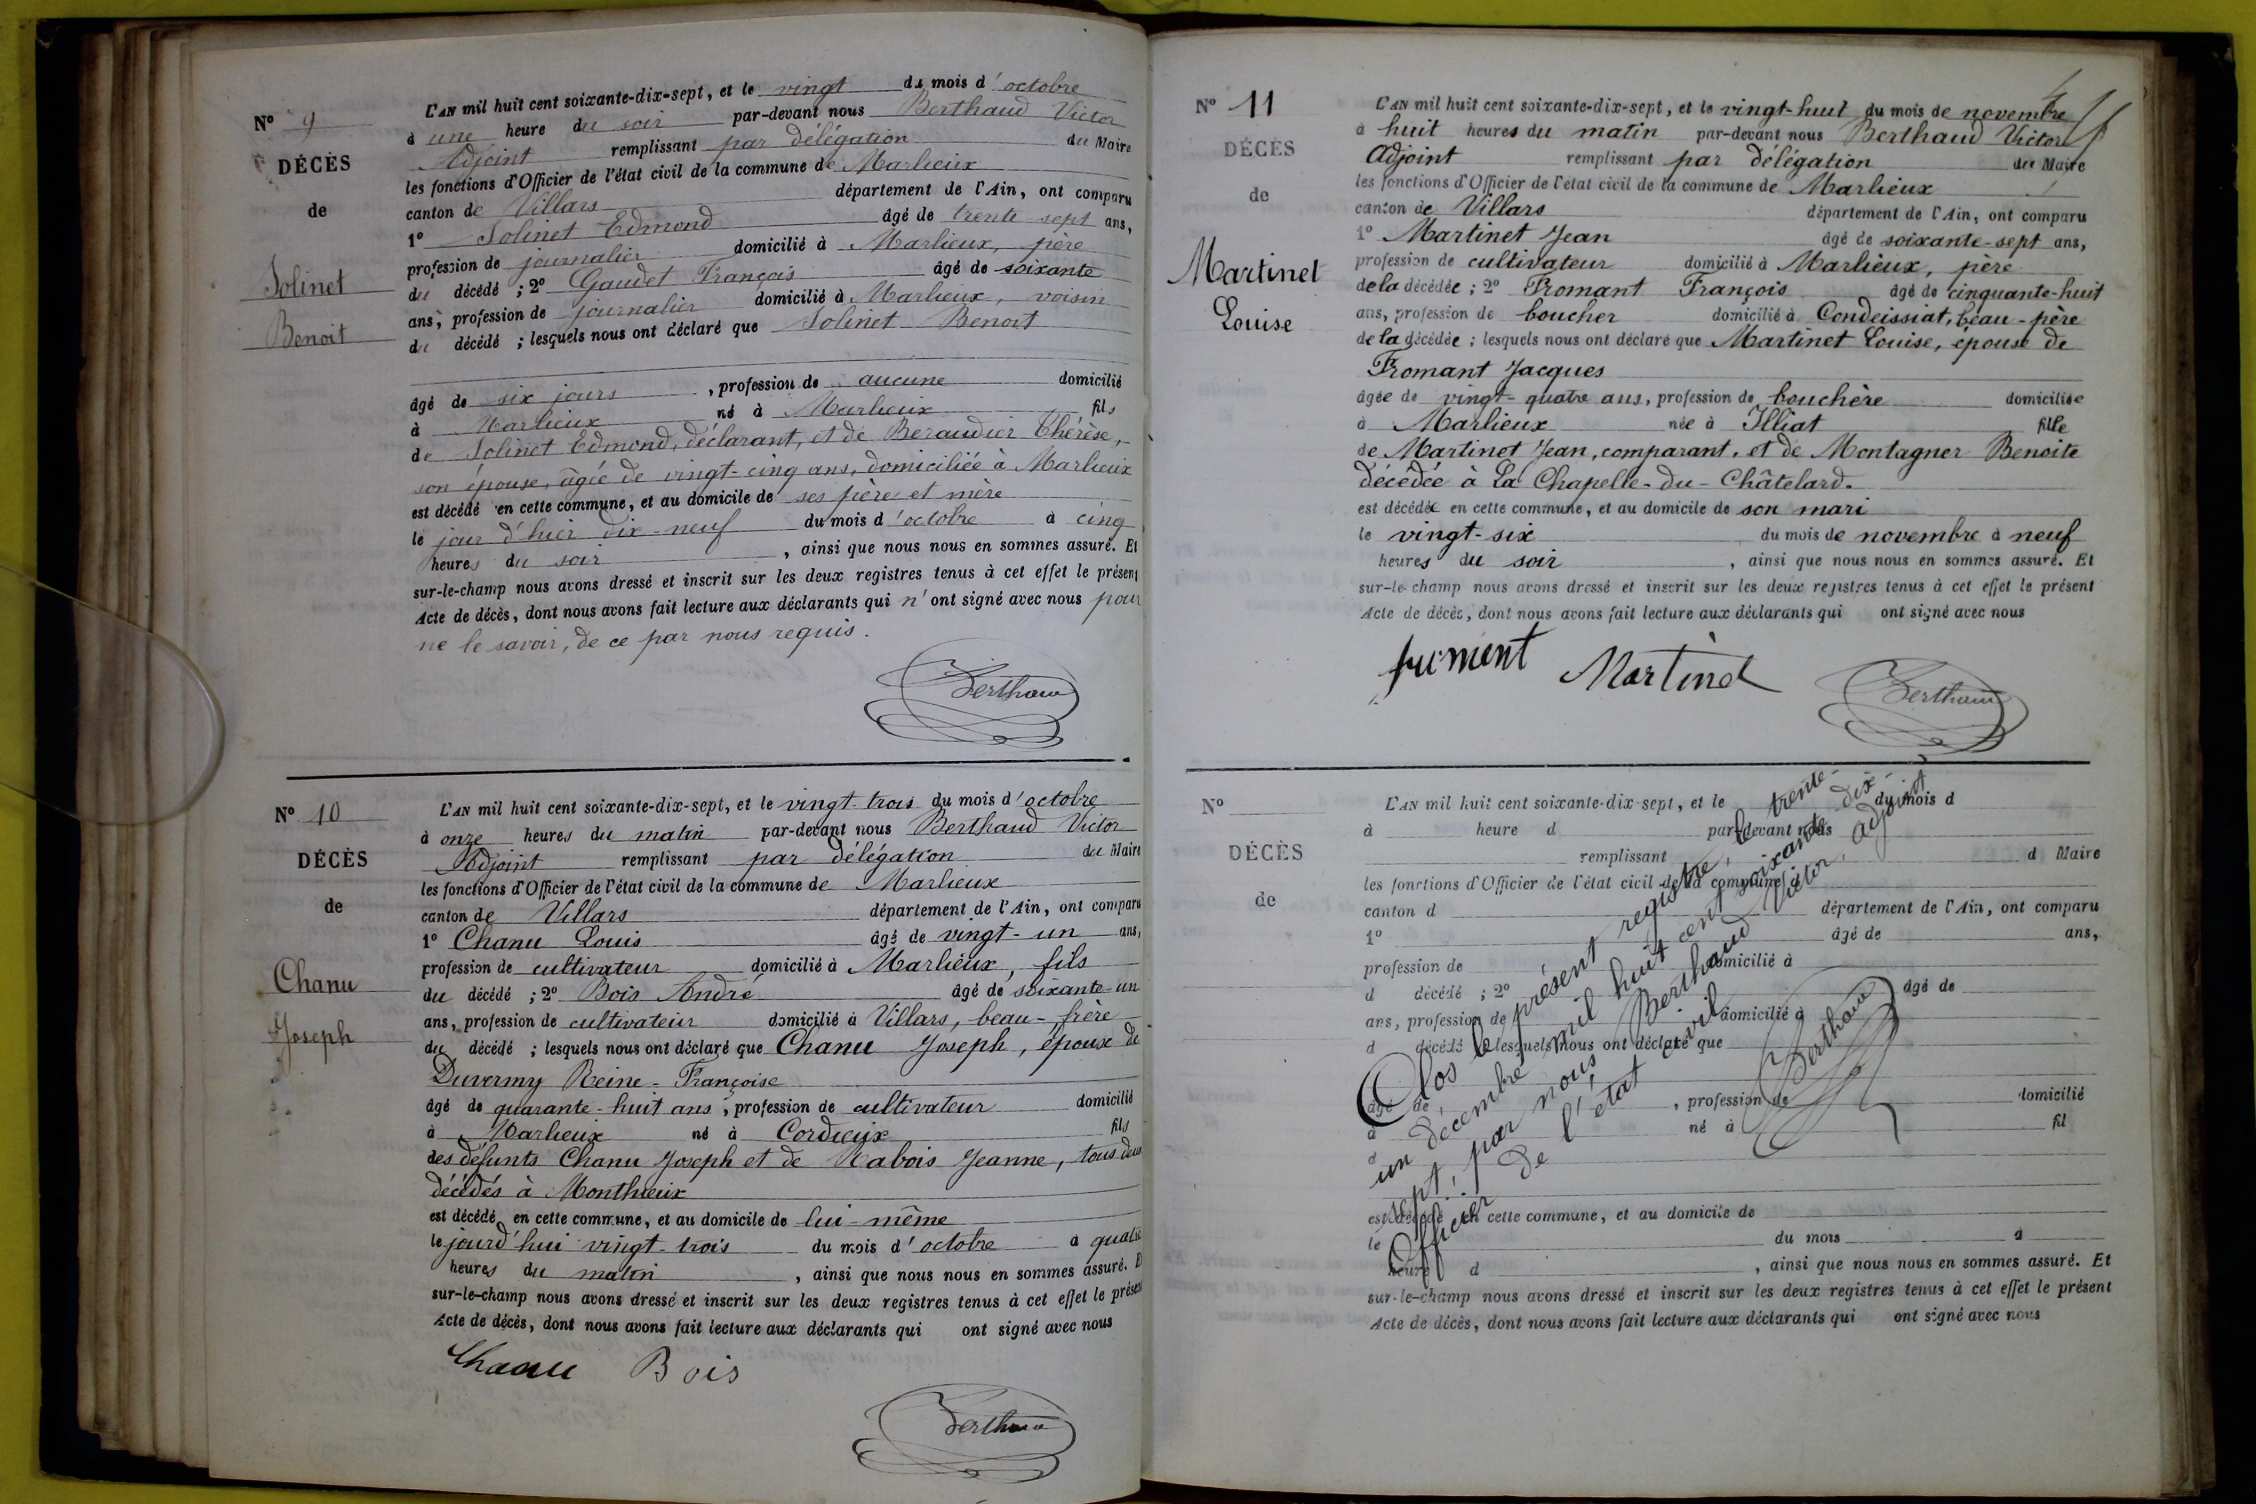 N° 9
DÉCÈS
de
Solinet
Benoit
L'AN mil huit cent soixante-dix-sept, et le vingt du mois d'octobre
à une heure du soir par-devant nous Berthaud Victor
Adjoint remplissant par délégation du Maire
les fonctions d'Officier de l'état civil de la commune de Marlieux
canton de Villars département de l'Ain, ont comparu
1° Solinet Edmond âgé de trente sept ans,
profession de journalier domicilié à Marlieux, père
du décédé ; 2° Gaudet François âgé de soixante
ans, profession de journalier domicilié à Marlieux, voisin
du décédé ; lesquels nous ont déclaré que Solinet Benoit
âgé de six jours, profession de aucune domicilié
à Marlieux né à Marlieux fils
de Solinet Edmond, déclarant, et de Beraudier Thérèse,
son épouse, âgée de vingt-cinq ans, domiciliée à Marlieux
est décédé en cette commune, et au domicile de ses pères et mère
le jour d'hier dix-neuf du mois d'octobre à cinq
heures du soir, ainsi que nous nous en sommes assuré. Et
sur-le-champ nous avons dressé et inscrit sur les deux registres tenus à cet effet le présent
Acte de décès, dont nous avons fait lecture aux déclarants qui n'ont signé avec nous pour
ne le savoir, de ce par nous requis.
Berthaud
N° 10
DÉCÈS
de
Chanu
Joseph
L'AN mil huit cent soixante-dix-sept, et le vingt-trois du mois d'octobre
à onze heures du matin par-devant nous Berthaud Victor
Adjoint remplissant par délégation du Maire
les fonctions d'Officier de l'état civil de la commune de Marlieux
canton de Villars département de l'Ain, ont comparu
1° Chanu Louis âgé de vingt-un ans,
profession de cultivateur domicilié à Marlieux, fils
du décédé ; 2° Bois André âgé de soixante-un
ans, profession de cultivateur domicilié à Villars, beau-frère
du décédé ; lesquels nous ont déclaré que Chanu Joseph, époux de
Duvermy Reine-Françoise
âgé de quarante-huit ans, profession de cultivateur domicilié
à Marlieux né à Cordieux fils
des défunts Chanu Joseph et de Rabois Jeanne, tous deux
décédés à Monthieux
est décédé en cette commune, et au domicile de lui-même
le jourd'hui vingt-trois du mois d'octobre à quatre
heures du matin, ainsi que nous nous en sommes assuré. E
sur-le-champ nous avons dressé et inscrit sur les deux registres tenus à cet effet le présen
Acte de décès, dont nous avons fait lecture aux déclarants qui ont signé avec nous
Chanu Bois
Berthaud
N° 11
DÉCÈS
de
Martinet
Louise
L'AN mil huit cent soixante-dix-sept, et le vingt-huit du mois de novembre
à huit heures du matin par-devant nous Berthaud Victor
Adjoint remplissant par délégation du Maire
les fonctions d'Officier de l'état civil de la commune de Marlieux
canton de Villars département de l'Ain, ont comparu
1° Martinet Jean âgé de soixante-sept ans,
profession de cultivateur domicilié à Marlieux, père
de la décédée ; 2° Fromant François âgé de cinquante-huit
ans, profession de boucher domicilié à Condeissiat, beau-père
de la décédée ; lesquels nous ont déclaré que Martinet Louise, épouse de
Fromant Jacques
âgée de vingt-quatre ans, profession de bouchère domiciliée
à Marlieux née à Illiat fille
de Martinet Jean, comparant, et de Montagner Benoite
décédée à La Chapelle-du-Châtelard.
est décédée en cette commune, et au domicile de son mari
le vingt-six du mois de novembre à neuf
heures du soir, ainsi que nous nous en sommes assuré. Et
sur-le-champ nous avons dressé et inscrit sur les deux registres tenus à cet effet le présent
Acte de décès, dont nous avons fait lecture aux déclarants qui ont signé avec nous
froment Martinet
Berthaud
N°
DÉCÈS
de
L'AN mil huit cent soixante-dix-sept, et le du mois d
à heure d par-devant nous
remplissant d Maire
les fonctions d'Officier de l'état civil de la commune d
canton d département de l'Ain, ont comparu
1° âgé de ans,
profession de domicilié à
d décédé ; 2° âgé de
ans, profession de domicilié à
d décédé lesquels nous ont déclaré que
âgé de , profession de domicilié
à né à fil
d
est décédé en cette commune, et au domicile de
le du mois à
heure d , ainsi que nous nous en sommes assuré. Et
sur-le-champ nous avons dressé et inscrit sur les deux registres tenus à cet effet le présent
Acte de décès, dont nous avons fait lecture aux déclarants qui ont signé avec nous
Clos le présent registre, le trente-
un décembre mil huit cent soixante-dix-
sept, par nous Berthaud Victor, adjoint
Officier de l'état civil
Berthaud